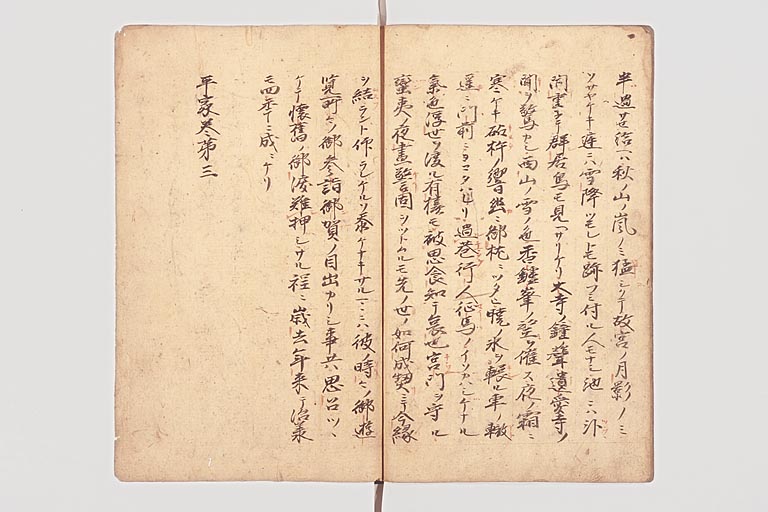 半過サセ給ヘハ秋ノ山ノ嵐ノミ猛シクテ故宮ノ月影ノミ
ソサヤケキ庭ニハ雪降ツモレトモ跡フミ付ル人モナシ池ニハ氷
閉重テ群居鳥モ見ヘサリケリ大寺ノ鐘聲遺愛寺ノ
聞ヲ驚カシ西山ノ雪ノ色香鑪峯ノ望ヲ催ス夜ノ霜ニ
寒ケキ砧杵ノ響幽ニ御枕ニツタヒ暁ノ氷ヲ轢ル車ノ轍
遥ニ門前ニヨコタハレリ過巷行人征馬ノイソカハシケナル
氣色浮世ヲ渡ル有様モ被思食知テ哀也宮門ヲ守ル
蠻夷ノ夜晝警固ヲツトムルモ先ノ世ノ如何成契ニテ今縁
ヲ結ラント仰ラレケルソ忝ケナキサルニハ彼ノ時ニノ御遊
覧所々ノ御参詣御賀ノ目出カリシ事共思召ツヽ
ケテ懐舊ノ御涙難押シサル程ニ歳去年来テ治承
モ四年ニ成ニケリ
平家巻第三